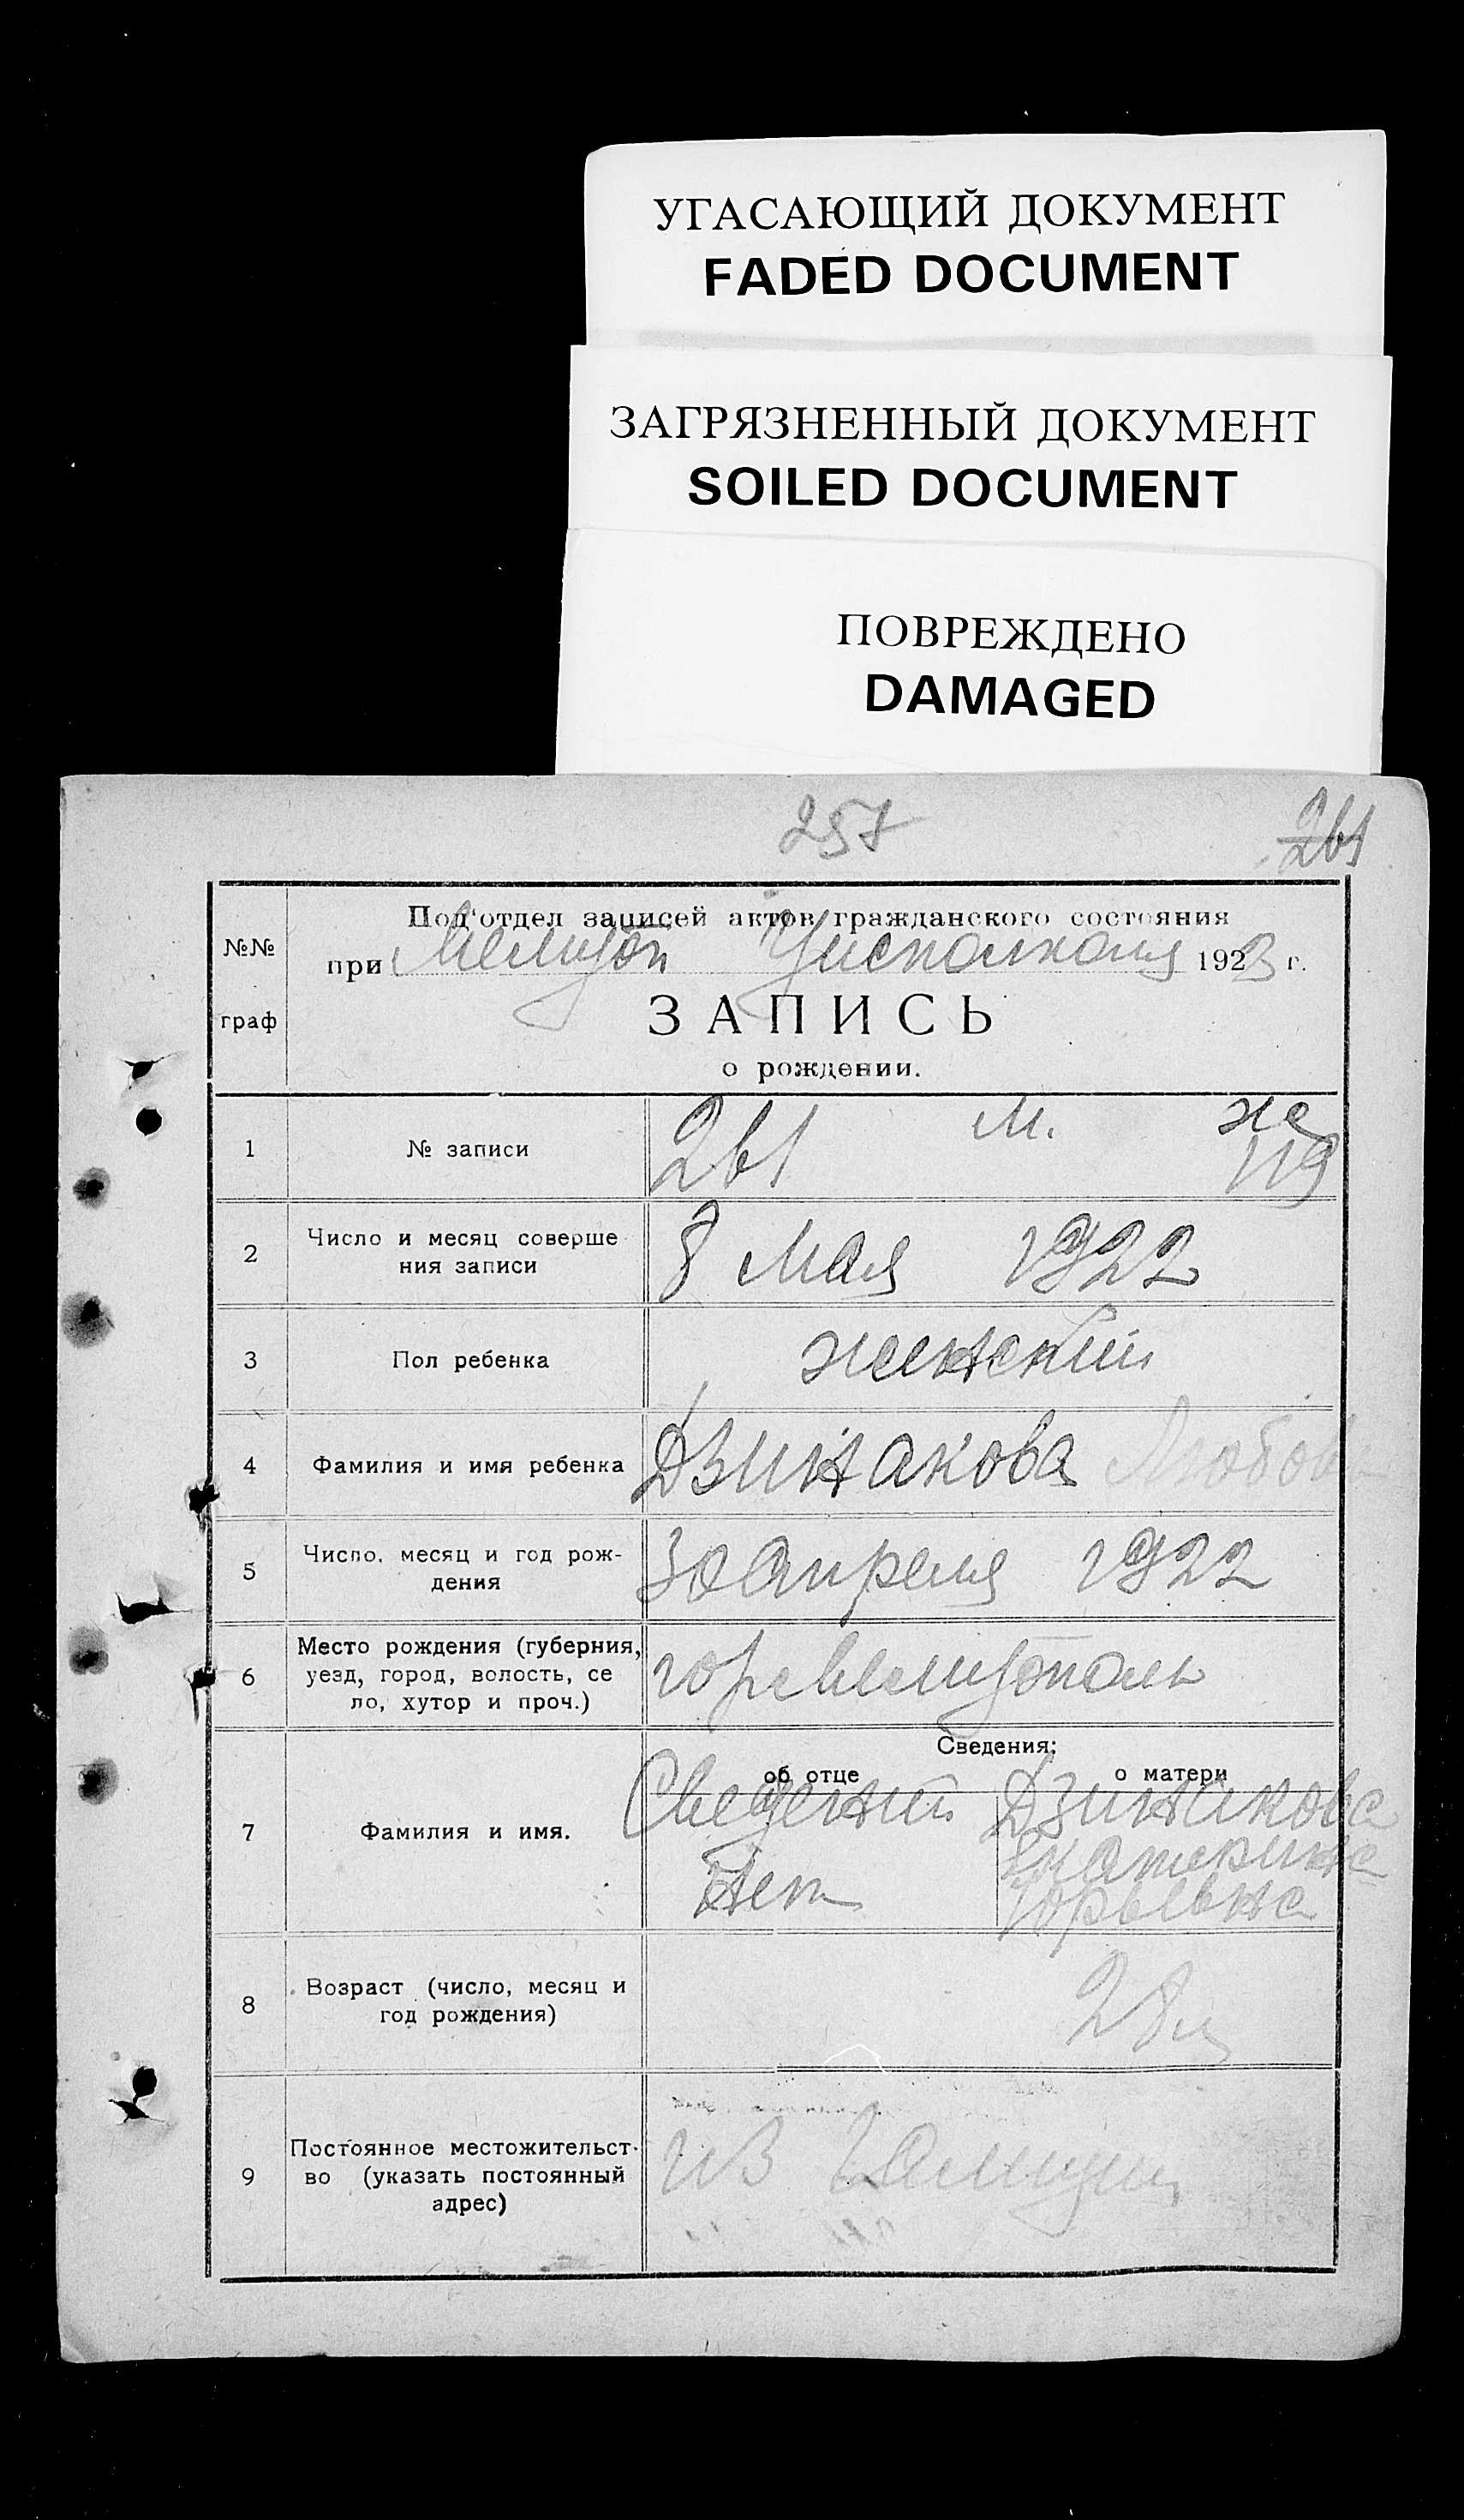 УГАСАЮЩИЙ ДОКУМЕНТ
FADED DOCUMENT
ЗАГРЯЗНЕННЫЙ ДОКУМЕНТ
SOILED DOCUMENT
ПОВРЕЖДЕНО
DAMAGED
257 261
№№ граф
Под'отдел записей актов гражданского состояния
при Мелитоп Уисполкома 1923 г.
ЗАПИСЬ
о рождении.
1 № записи 261 м. ж
119
2 Число и месяц соверше
ния записи 8 Мая 1922
3 Пол ребенка женский
4 Фамилия и имя ребенка Дзинакова Любов
5 Число, месяц и год рож-
дения 30 Апреля 1922
6 Место рождения (губерния,
уезд, город, волость, се
ло, хутор и проч.) гор Мелитополь
Сведения:
об отце о матери
7 Фамилия и имя. Сведений Дзинакова
Нет Екатерина
Юрьевна
8 Возраст (число, месяц и
год рождения) 28 л
9 Постоянное местожительст-
во (указать постоянный
адрес) из